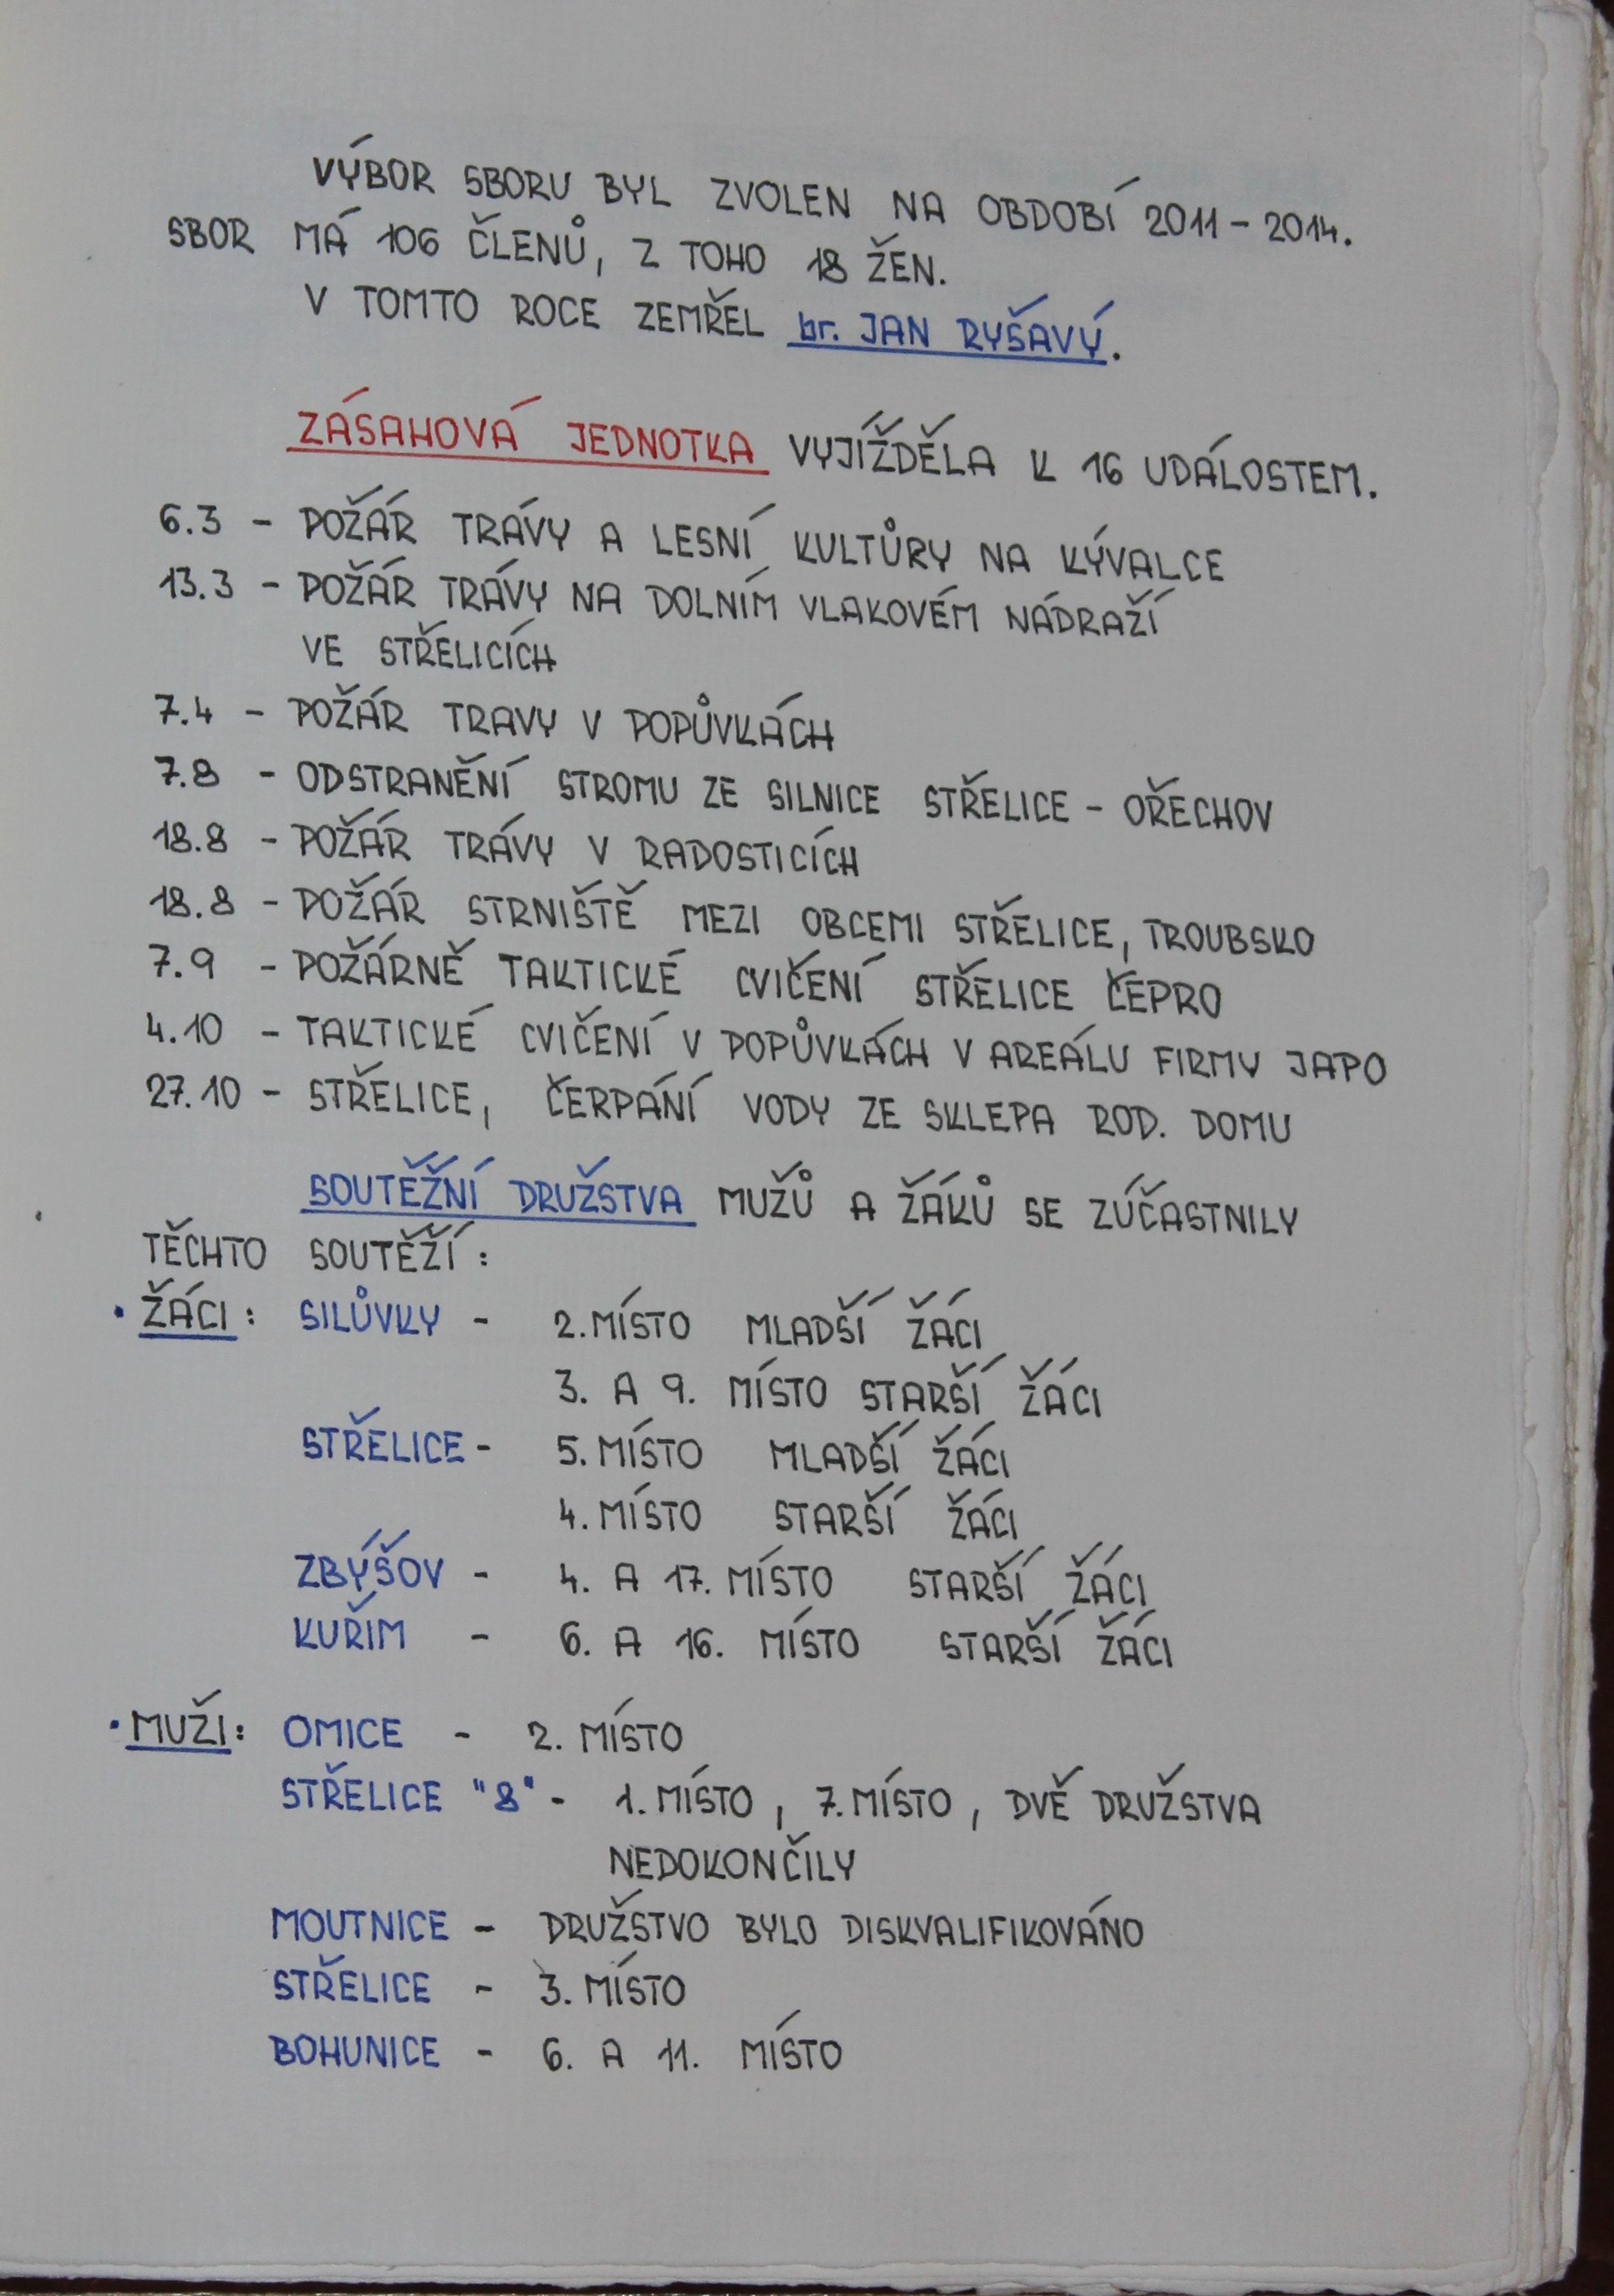 VÝBOR SBORU BYL ZVOLEN NA OBDOBÍ 2011 - 2014.
SBOR MÁ 106 ČLENŮ, Z TOHO 18 ŽEN.
V TOMTO ROCE ZEMŘEL br. JAN RYŠAVÝ.
ZÁSAHOVÁ JEDNOTKA VYJÍŽDĚLA K 16 UDÁLOSTEM.
6.3 - POŽÁR TRÁVY A LESNÍ KULTŮRY NA KÝVALCE
13.3 - POŽÁR TRÁVY NA DOLNÍM VLAKOVÉM NÁDRAŽÍ
VE STŘELICÍCH
7.4 - POŽÁR TRAVY V POPŮVKÁCH
7.8 - ODSTRANĚNÍ STROMU ZE SILNICE STŘELICE - OŘECHOV
18.8 - POŽÁR TRÁVY V RADOSTICÍCH
18.8 - POŽÁR STRNIŠTĚ MEZI OBCEMI STŘELICE, TROUBSKO
7.9 - POŽÁRNĚ TAKTICKÉ CVIČENÍ STŘELICE ČEPRO
4.10 - TAKTICKÉ CVIČENÍ V POPŮVKÁCH V AREÁLU FIRMY JAPO
27.10 - STŘELICE, ČERPÁNÍ VODY ZE SKLEPA ROD. DOMU
SOUTĚŽNÍ DRUŽSTVA MUŽŮ A ŽÁKŮ SE ZÚČASTNILY
TĚCHTO SOUTĚŽÍ:
• ŽÁCI: SILŮVKY - 2. MÍSTO MLADŠÍ ŽÁCI
3. A 9. MÍSTO STARŠÍ ŽÁCI
STŘELICE - 5. MÍSTO MLADŠÍ ŽÁCI
4. MÍSTO STARŠÍ ŽÁCI
ZBÝŠOV - 4. A 17. MÍSTO STARŠÍ ŽÁCI
KUŘIM - 6. A 16. MÍSTO STARŠÍ ŽÁCI
• MUŽI: OMICE - 2. MÍSTO
STŘELICE "8" - 1. MÍSTO, 7. MÍSTO, DVĚ DRUŽSTVA
NEDOKONČILY
MOUTNICE - DRUŽSTVO BYLO DISKVALIFIKOVÁNO
STŘELICE - 3. MÍSTO
BOHUNICE - 6. A 11. MÍSTO